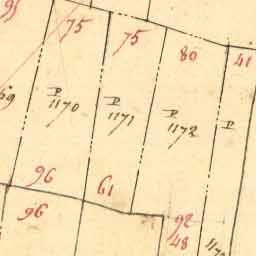 95
75
75
80
41
59
P
1170
P
1171
P
1172
P
96
61
96
92
48